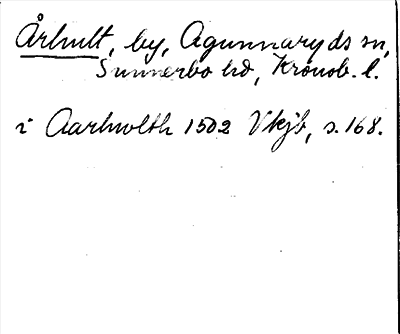 Århult, by, Agunnaryds sn,
Sunnerbo hd, Kronob. l.
i Aarhwlth 1502 Vkjb, s. 168.